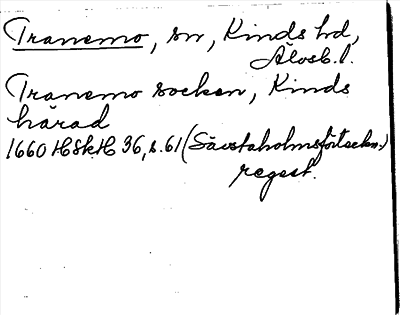 Tranemo, sn, Kinds hd,
Älvsb. l.
Tranemo socken, Kinds
härad
1660 HSkH 36, s. 61 (Sävstaholmsförteckn.)
regest.